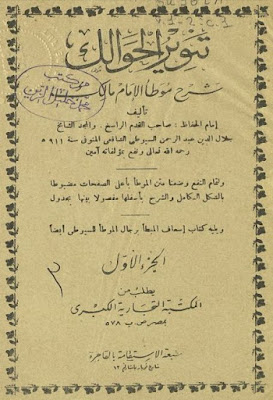 تنوير الحوالك
شرح موطأ الإمام مالك
تأليف
إمام الحفاظ: صاحب القدم الراسخ. والمجد الشامخ
جلال الدين عبد الرحمن السيوطي الشافعي المتوفى سنة ٩١١ ه
رحمه الله تعالى ونفع بمؤلفاته آمين
ولتمام النفع وضعنا متن الموطأ بأعلى الصفحات مضبوطا
بالشكل الكامل والشرح بأسفلها مفصولا بينها بجدول
ويليه كتاب إسعاف المبطأ برجال الموطأ للسيوطي أيضا
الجزء الأول
يطلب من
المكتبة التجارية الكبرى
بمصر ص. ب ٥٧٨
مطبعة الاستقامة بالقاهرة